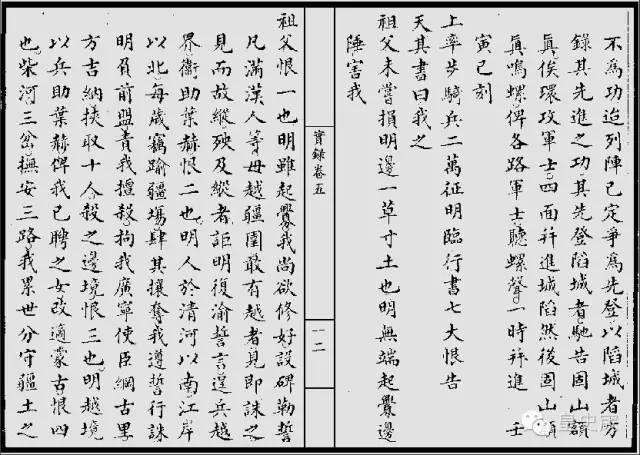 不爲功迨列陣已定爭爲先登以陷城者方
錄其先進之功其先登陷城者馳告固山額
眞俟環攻軍士四面并進城陷然後固山額
眞鳴螺俾各路軍士聽螺聲一時并進　壬
寅巳刻
上率步騎兵二萬征明臨行書七大恨告
天其書曰我之
祖父未嘗損明邊一草寸土也明無端起釁邊
陲害我
實錄卷五
一二
祖父恨一也明雖起釁我尚欲修好設碑勒誓
凡滿漢人等毋越疆圉敢有越者見即誅之
見而故縱殃及縱者詎明復渝誓言逞兵越
界衛助葉赫恨二也明人於清河以南江岸
以北每歲竊踰疆場肆其攘奪我遵誓行誅
明負前盟責我擅殺拘我廣寧使臣綱古里
方吉納挾取十人殺之邊境恨三也明越境
以兵助葉赫俾我已聘之女改適蒙古恨四
也柴河三岔撫安三路我累世分守疆土之
皇史宬